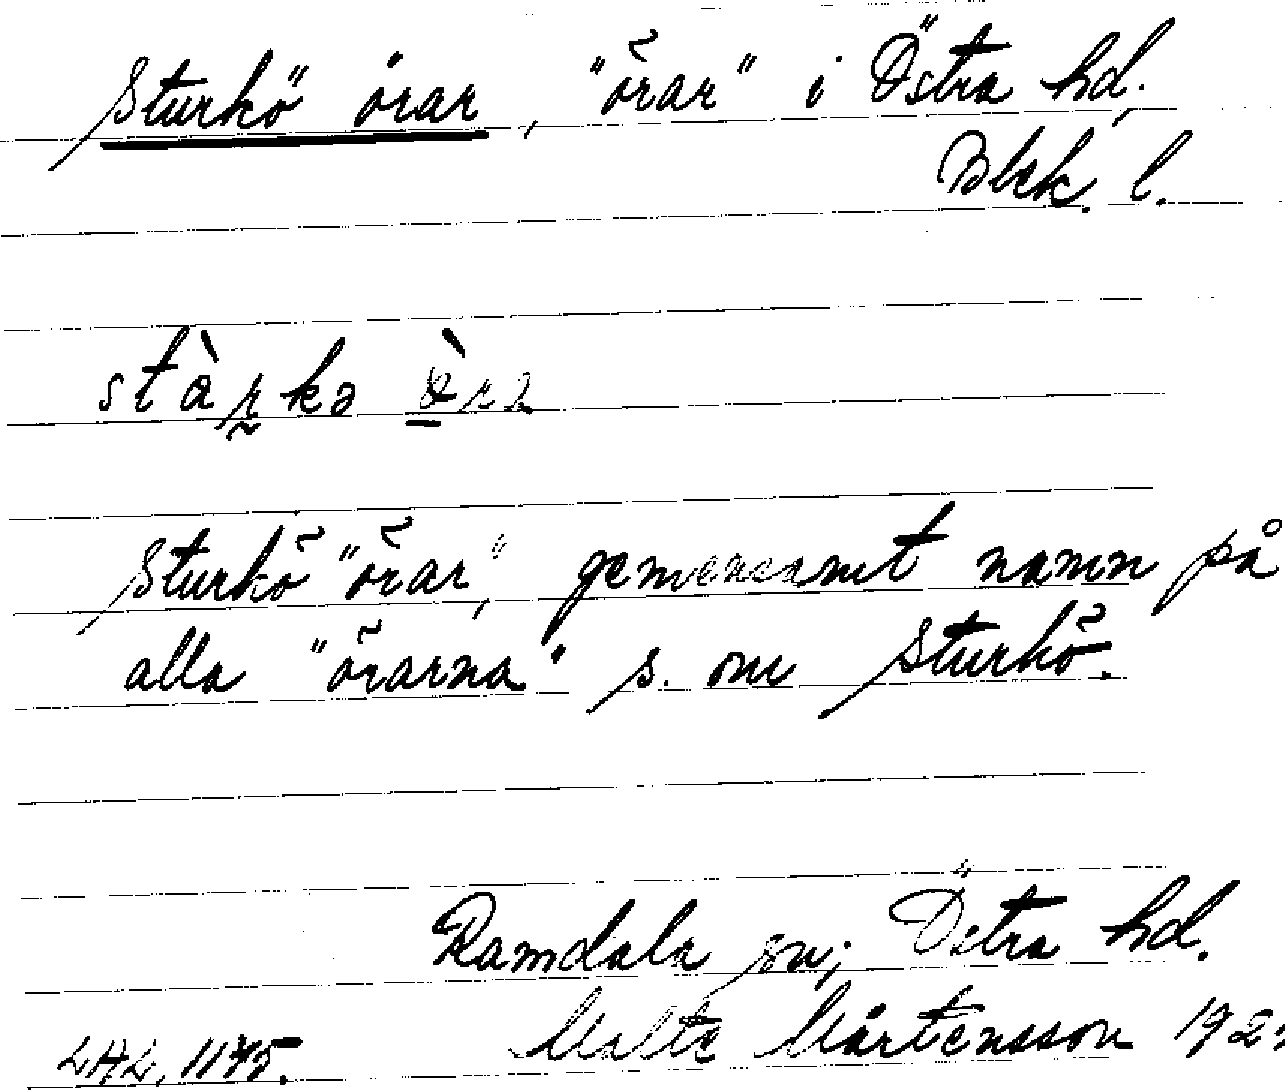 Sturkö örar, "örar" i Östra hd,
Blek. l.
Sturkö "örar," gemensamt namn på
alla "örarna" s. om Sturkö.
Ramdala sn; Östra hd.
Malte Mårtensson
LAL, 1175.